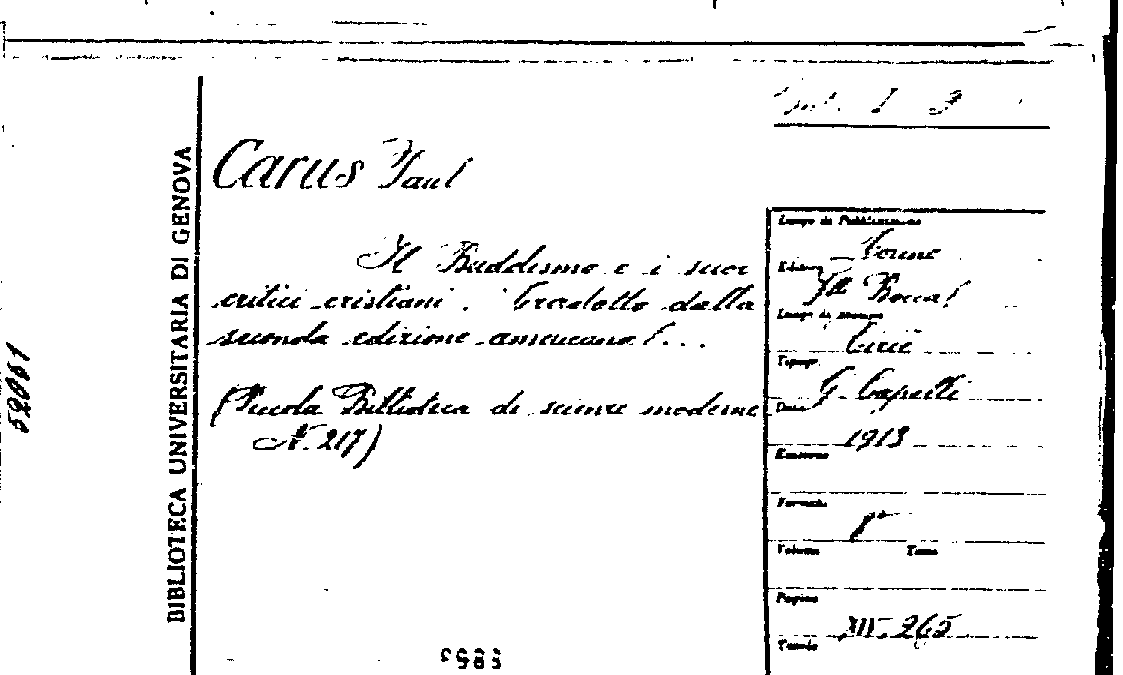 BIBLIOTECA UNIVERSITARIA DI GENOVA
52061
Carus Paul
Il Buddismo e i suoi
critici cristiani. Tradotto dalla
seconda edizione americana
(Piccola Biblioteca di scienze moderne
N. 217)
Luogo di Pubblicazione
Torino
Editore
F.lli Bocca
Luogo di stampa
Ciriè
Tipogr.
G. Capella
Data
1913
Edizione
Formato
8°
Volume Tomo
Pagine
XII-265
Tavole